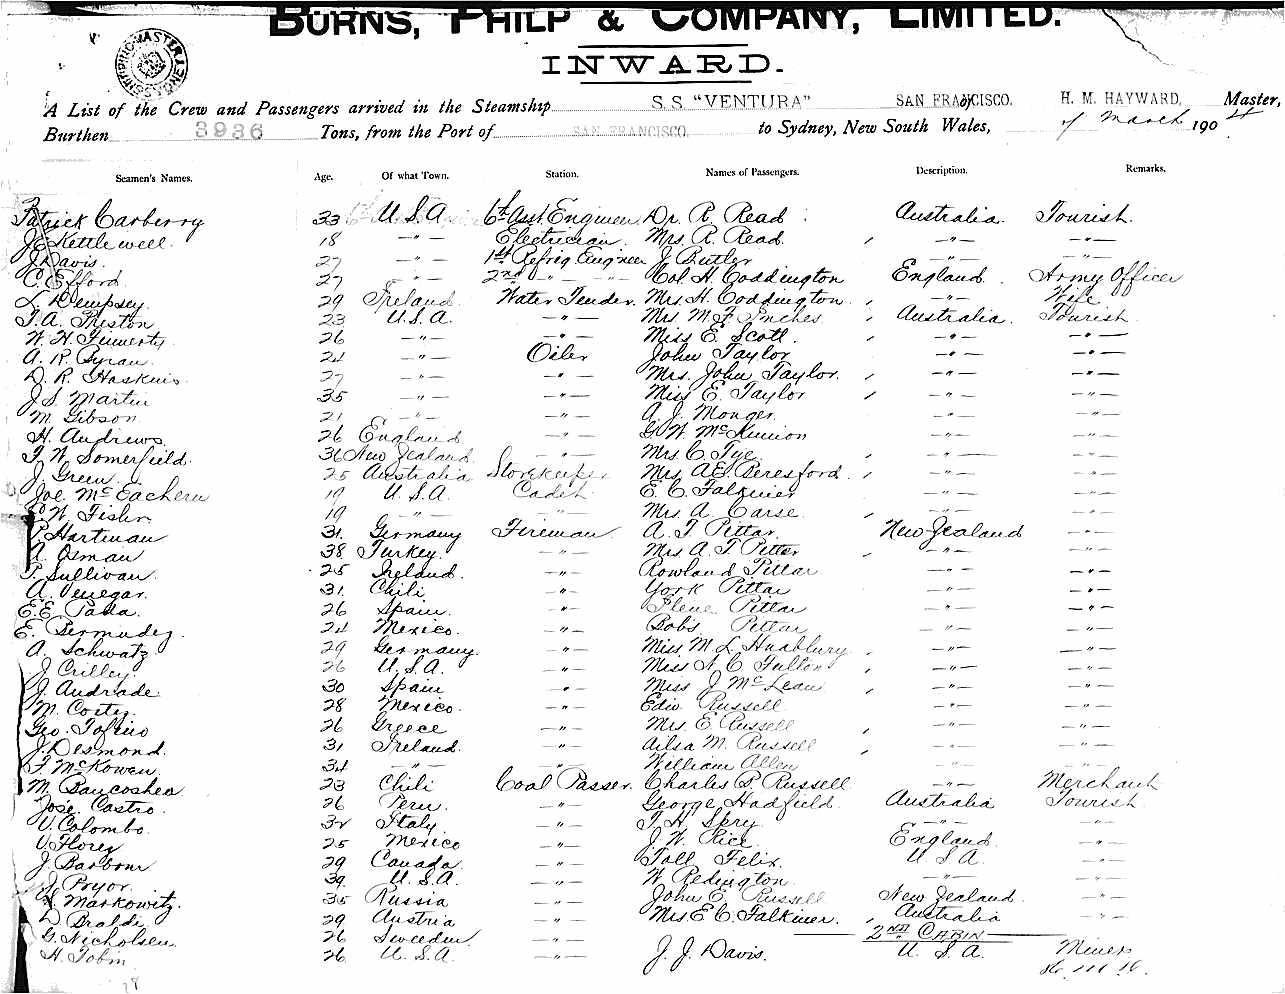 BURNS, PHILP & COMPANY, LIMITED.
INWARD.
A List of the Crew and Passengers arrived in the Steamship S.S. "VENTURA" SAN FRANCISCO. H. M. HAYWARD, Master,
Burthen 3936 Tons, from the Port of SAN FRANCISCO, to Sydney, New South Wales, 7 March 1904
Seamen's Names. Age. Of what Town. Station. Names of Passengers. Description. Remarks.
Patrick Carberry 33 U.S.A. 6th Asst. Engineer Dr. R. Read Australia Tourist.
J.C. Kettlewell. 18 -"- Electrician. Mrs. R. Read. -"- -"-
J. Davis. 27 -"- 1st Refrig Engineer J Butler -"- -"-
C. Efford. 27 -"- 2nd " -"- Col. H. Coddington England. Army Officer
L. Dempsey. 29 Ireland. Water Tender. Mrs. H. Coddington. -"- Wife
T.A. Preston 23 U.S.A. -"- Mrs M. F. Inches Australia. Tourist.
W. H. Finnerty 26 -"- -"- Miss E. Scott. -"- -"-
A. R. Byran. 24 -"- Oiler John Taylor -"- -"-
D. R. Haskins. 27 -"- -"- Mrs. John Taylor. -"- -"-
J.S. Martin 35 -"- -"- Miss E. Taylor -"- -"-
M. Gibson 21 -"- -"- A. J. Monger. -"- -"-
H. Andrews. 26 England -"- G. W. McKinnon -"- -"-
F. W. Somerfield. 36 New Zealand -"- Mrs C. Tye. -"- -"-
J. Green. 25 Australia Storekeeper Mrs A E Beresford. -"- -"-
Joe. McEachern 19 U.S.A. Cadet. E. C. Falkiner -"- -"-
W. Fisher. 19 -"- -"- Mrs A Carse. -"- -"-
P. Hartman 31. Germany Fireman. A. T. Pittar. New Zealand -"-
A. Osman 38. Turkey. -"- Mrs A. T. Pittar -"- -"-
P. Sullivan. 25 Ireland. -"- Rowland Pittar -"- -"-
A. Venegar. 31. Chili -"- York Pittar -"- -"-
E.E. Pada. 26 Spain. -"- Pittar -"- -"-
E. Bermudez. 24 Mexico. -"- Bobs Pittar -"- -"-
A. Schwatz. 29 Germany. -"- Miss M. L. -"- -"-
J Crilley. 26 U.S.A. -"- Miss A. C. Fulton -"- -"-
J. Andrade. 30 Spain -"- Miss J. McLean -"- -"-
M. Cortez. 28 Mexico. -"- Edw Russell -"- -"-
Geo. Tofino 26 Greece -"- Mrs. E Russell -"- -"-
J. Desmond. 31 Ireland. -"- Ailsa M. Russell -"- -"-
F. McKowen 34 -"- -"- William Allen -"- -"-
M. Bancoshea 23 Chili Coal Passer. Charles P. Russell -"- Merchant
Jose Castro. 26 Peru. -"- George Hadfield. Australia Tourist.
V. Colombo. 32 Italy. -"- T. H. Spry -"- -"-
V. Florez 25 Mexico -"- J. W. Rice England. -"-
J. Barbour 29 Canada. -"- Toll Felix. U S A. -"-
J. Pryor. 39. U.S.A. -"- W. Redington -"- -"-
L. Markowitz. 35 Russia -"- John E. Russell New Zealand. -"-
D. Braldi 29 Austria -"- Mrs E. C. Falkiner. Australia -"-
G. Nicholsen. 26 Sweeden -"- 2ND CABIN
H. Tobin 26 U.S.A. -"- J. J. Davis. U. S. A. Miner